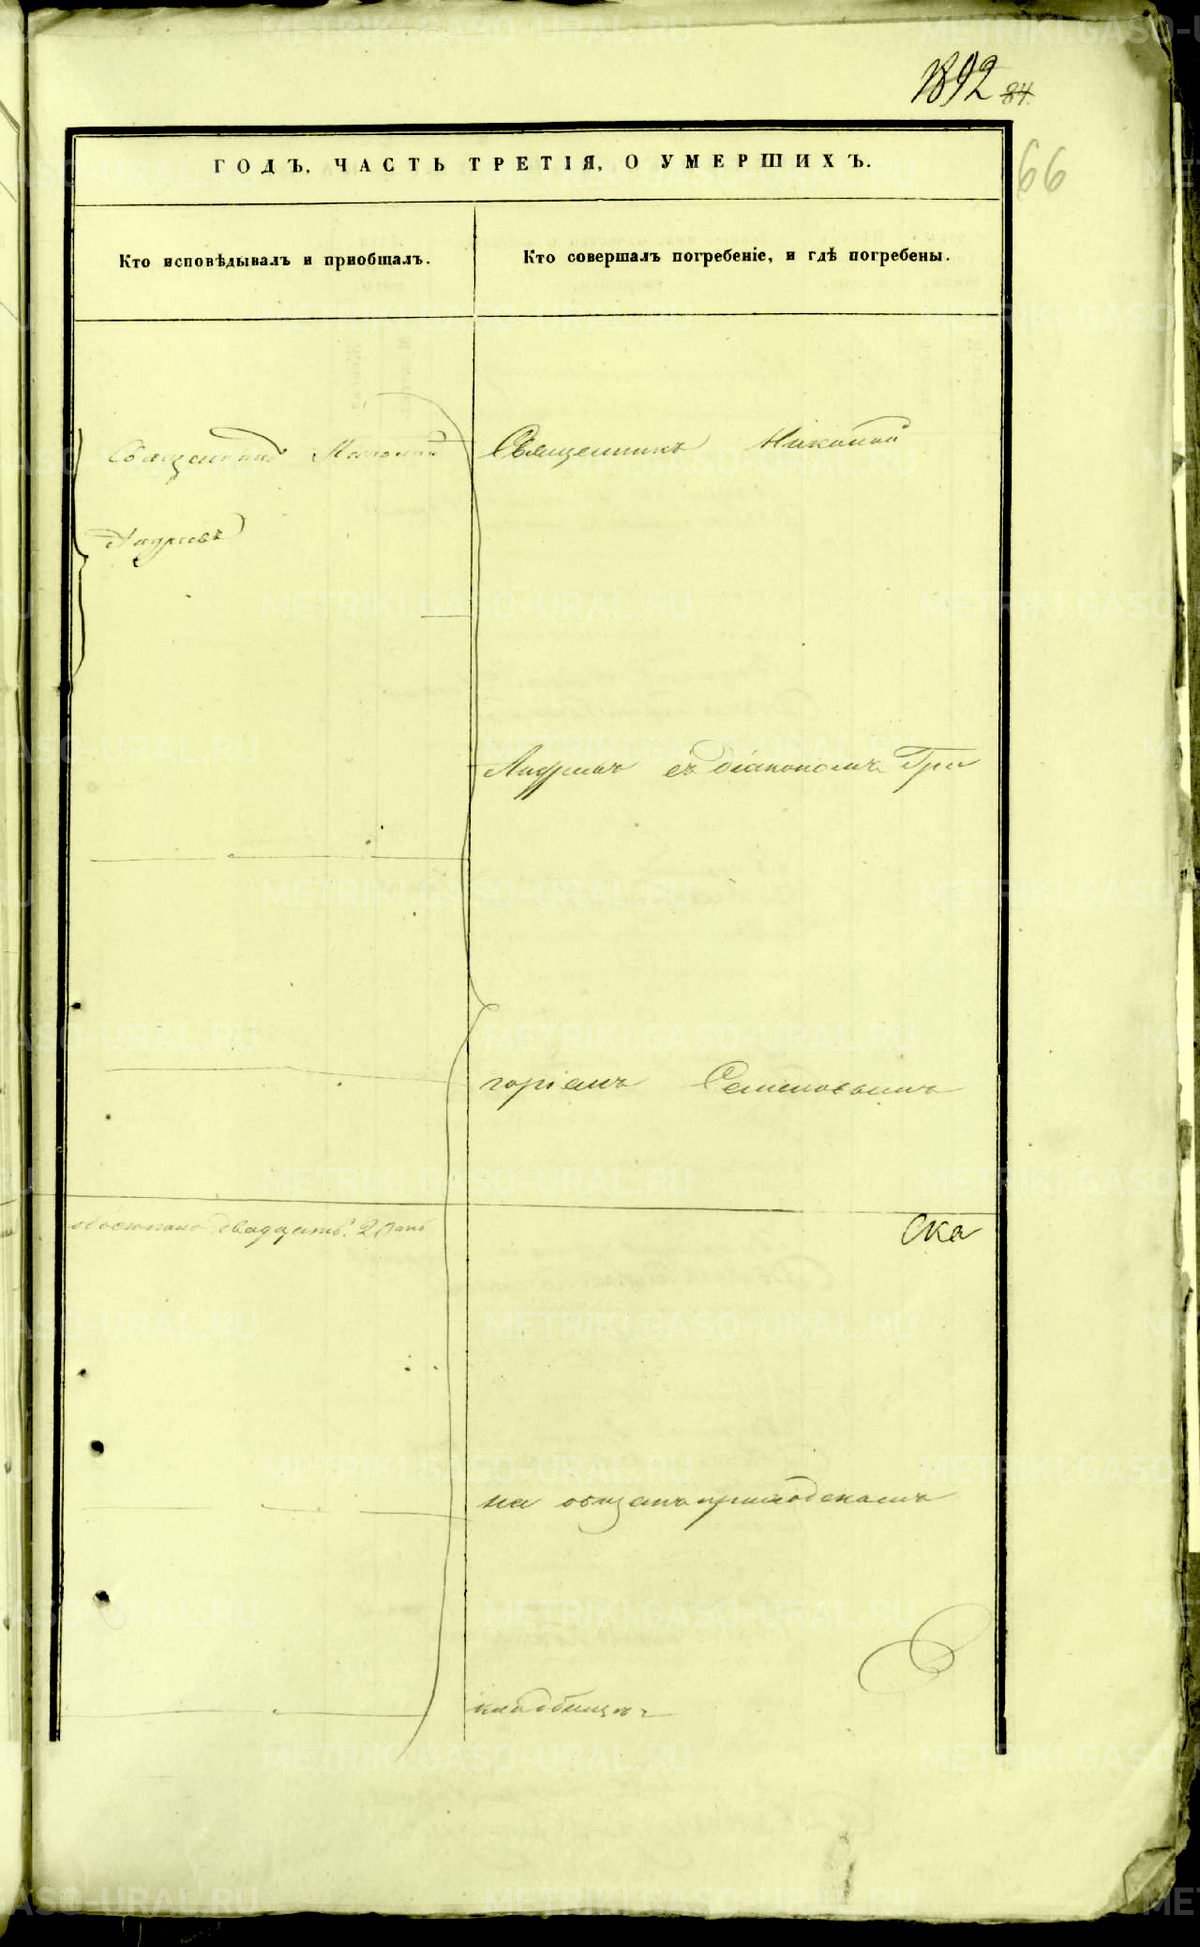 1892 84.
66
ГОДЪ, ЧАСТЬ ТРЕТІЯ, О УМЕРШИХЪ.
Кто исповѣдывалъ и пріобщалъ.
Кто совершалъ погребеніе, и гдѣ погребены.
Священникъ Николай
Андреевъ
Священникъ Николай
Андреевъ съ діакономъ Гри
горіемъ Семеновымъ
двадцать
Ска
на общемъ приходскомъ
кладбищѣ
METRIKI.GASO-URAL.RU